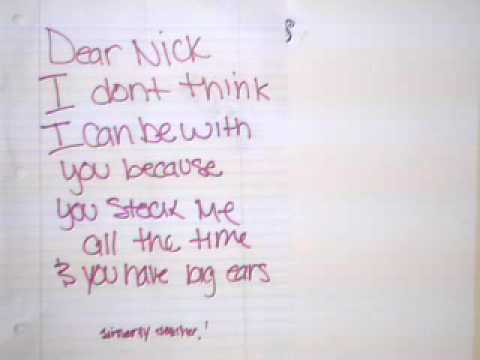 Dear Nick
I dont think
I can be with
you because
you stock me
all the time
& you have big ears